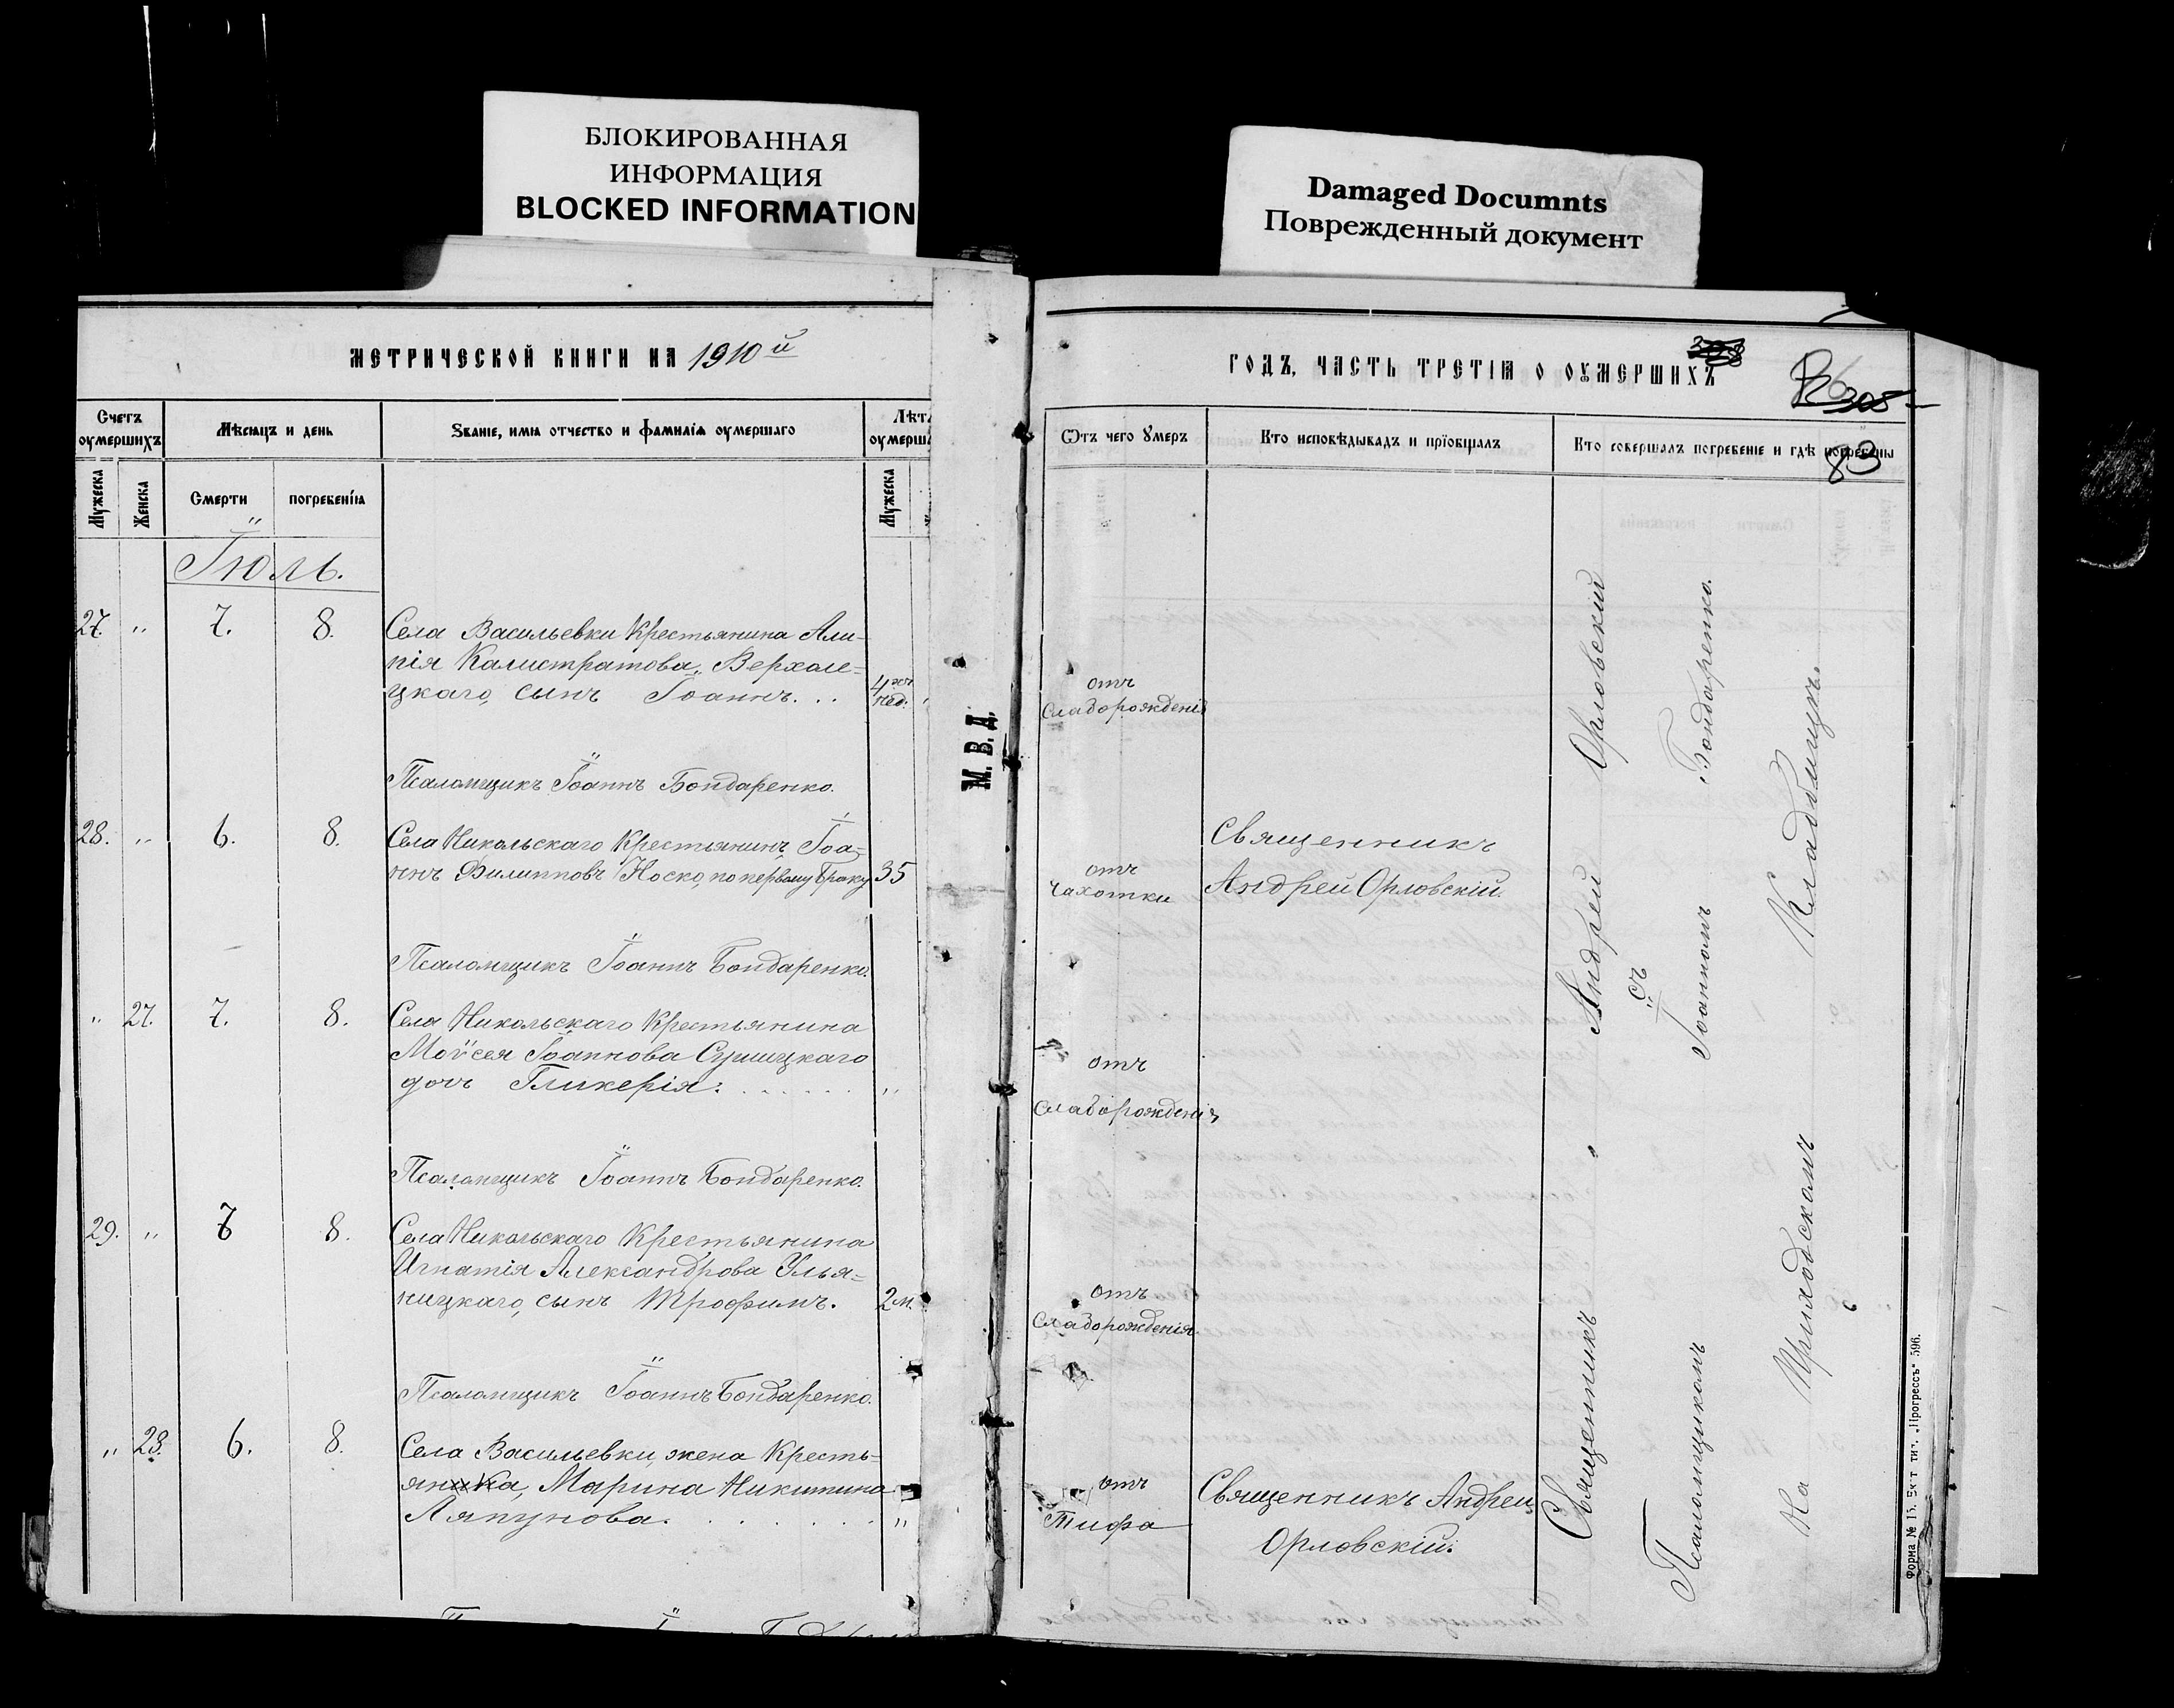 БЛОКИРОВАННАЯ
ИНФОРМАЦИЯ
BLOCKED INFORMATION
Damaged Documnts
Поврежденный документ
МЕТРИЧЕСКОЙ КНИГИ НА 1910й
Счетъ
оумершихъ
Мѣсяцъ и день
Званіе, имя отчество и фамилія оумершаго
Лѣт
оумерш
Мужеска
Женска
Смерти
погребенія
Мужеска
Іюль.
27. " 7. 8. Села Васильевки Крестьянина Али-
пія Калистратова, Верхоле-
цкаго, сынъ Іоаннъ. . .
4 нед.
Псаломщикъ Іоаннъ Бондаренко.
28. " 6. 8. Села Никольскаго Крестьянинъ, Іоа-
ннъ Филипповъ Носко, по первому браку 35
Псаломщикъ Іоаннъ Бондаренко.
" 27. 7. 8. Села Никольскаго Крестьянина
Моѵсея Іоаннова Сушицкаго
дочь Гликерія. . . . . . . "
Псаломщикъ Іоаннъ Бондаренко.
29. " 8. Села Никольскаго Крестьянина
Игнатія Александрова Улья-
ницкаго, сынъ Трофимъ. 2 м.
Псаломщикъ Іоаннъ Бондаренко.
" 28. 6. 8. Села Васильевки, жена Кресть-
янина, Марина Никитина
Ляпунова. . . . . . . . "
М. В. Д.
ГОДЪ, ЧАСТЬ ТРЕТІЯ О ОУМЕРШИХЪ
308
305
83
Ѿтъ чего Умеръ
Кто исповѣдывадъ и прїобщалъ
Кто совершалъ погребеніе и гдѣ погребены
отъ
Слаборожденія
отъ
Чахотки
Священникъ
Андрей Орловскій.
отъ
Слаборожденія
отъ
Слаборожденія.
отъ
Тифа
Священникъ Андрей
Орловскій.
Священникъ Андрей Орловскій
съ
Псаломщикомъ Іоанномъ Бондаренко.
На Приходскомъ Кладбищѣ.
Форма № 13. Ект тип. „Прогрессъ“ 596.